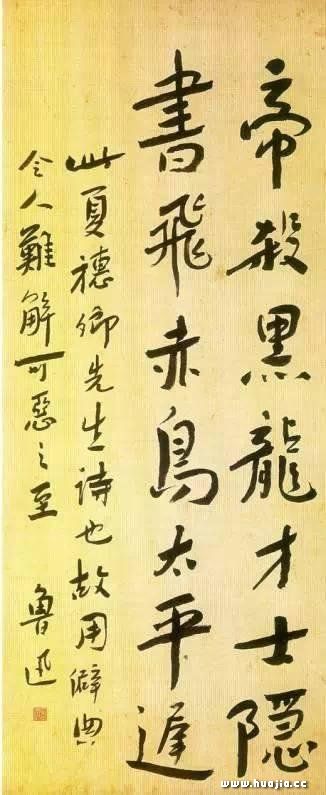 帝殺黑龍才士隱
書飛赤鳥太平遲
此夏穗卿先生詩也故用僻典
令人難解可惡之至
魯迅
www.huajia.cc